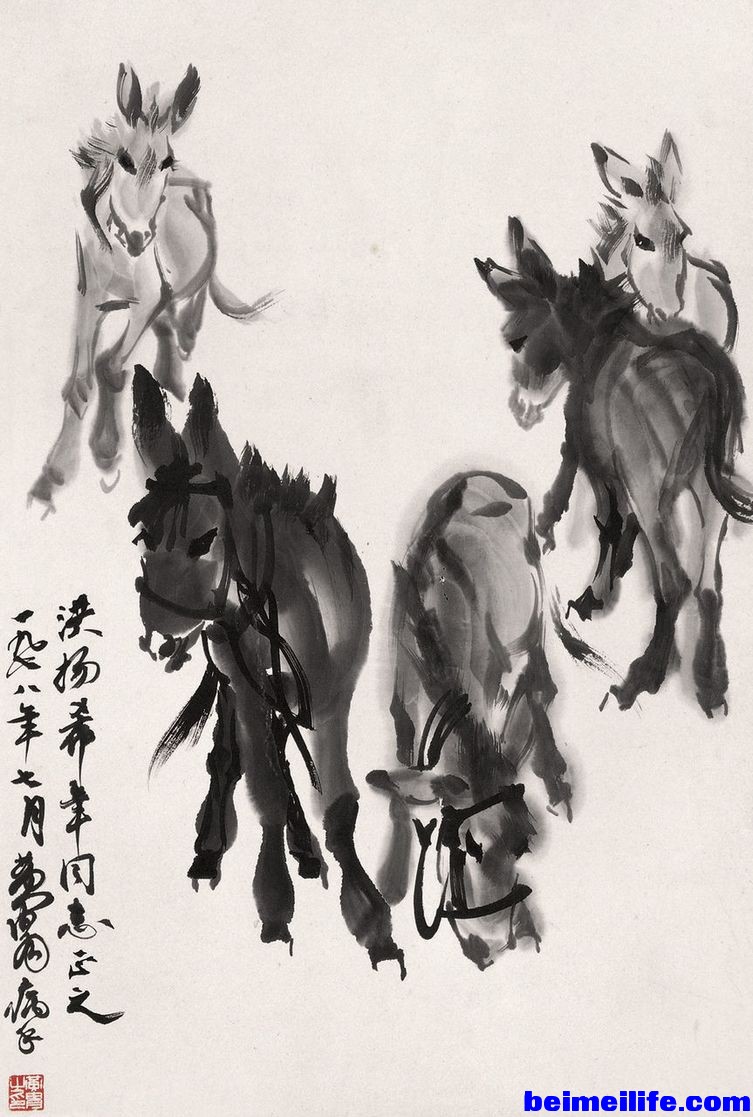 洪扬希年同志正之
一九七八年七月黄胄病手
黄胄之印
beimeilife.com